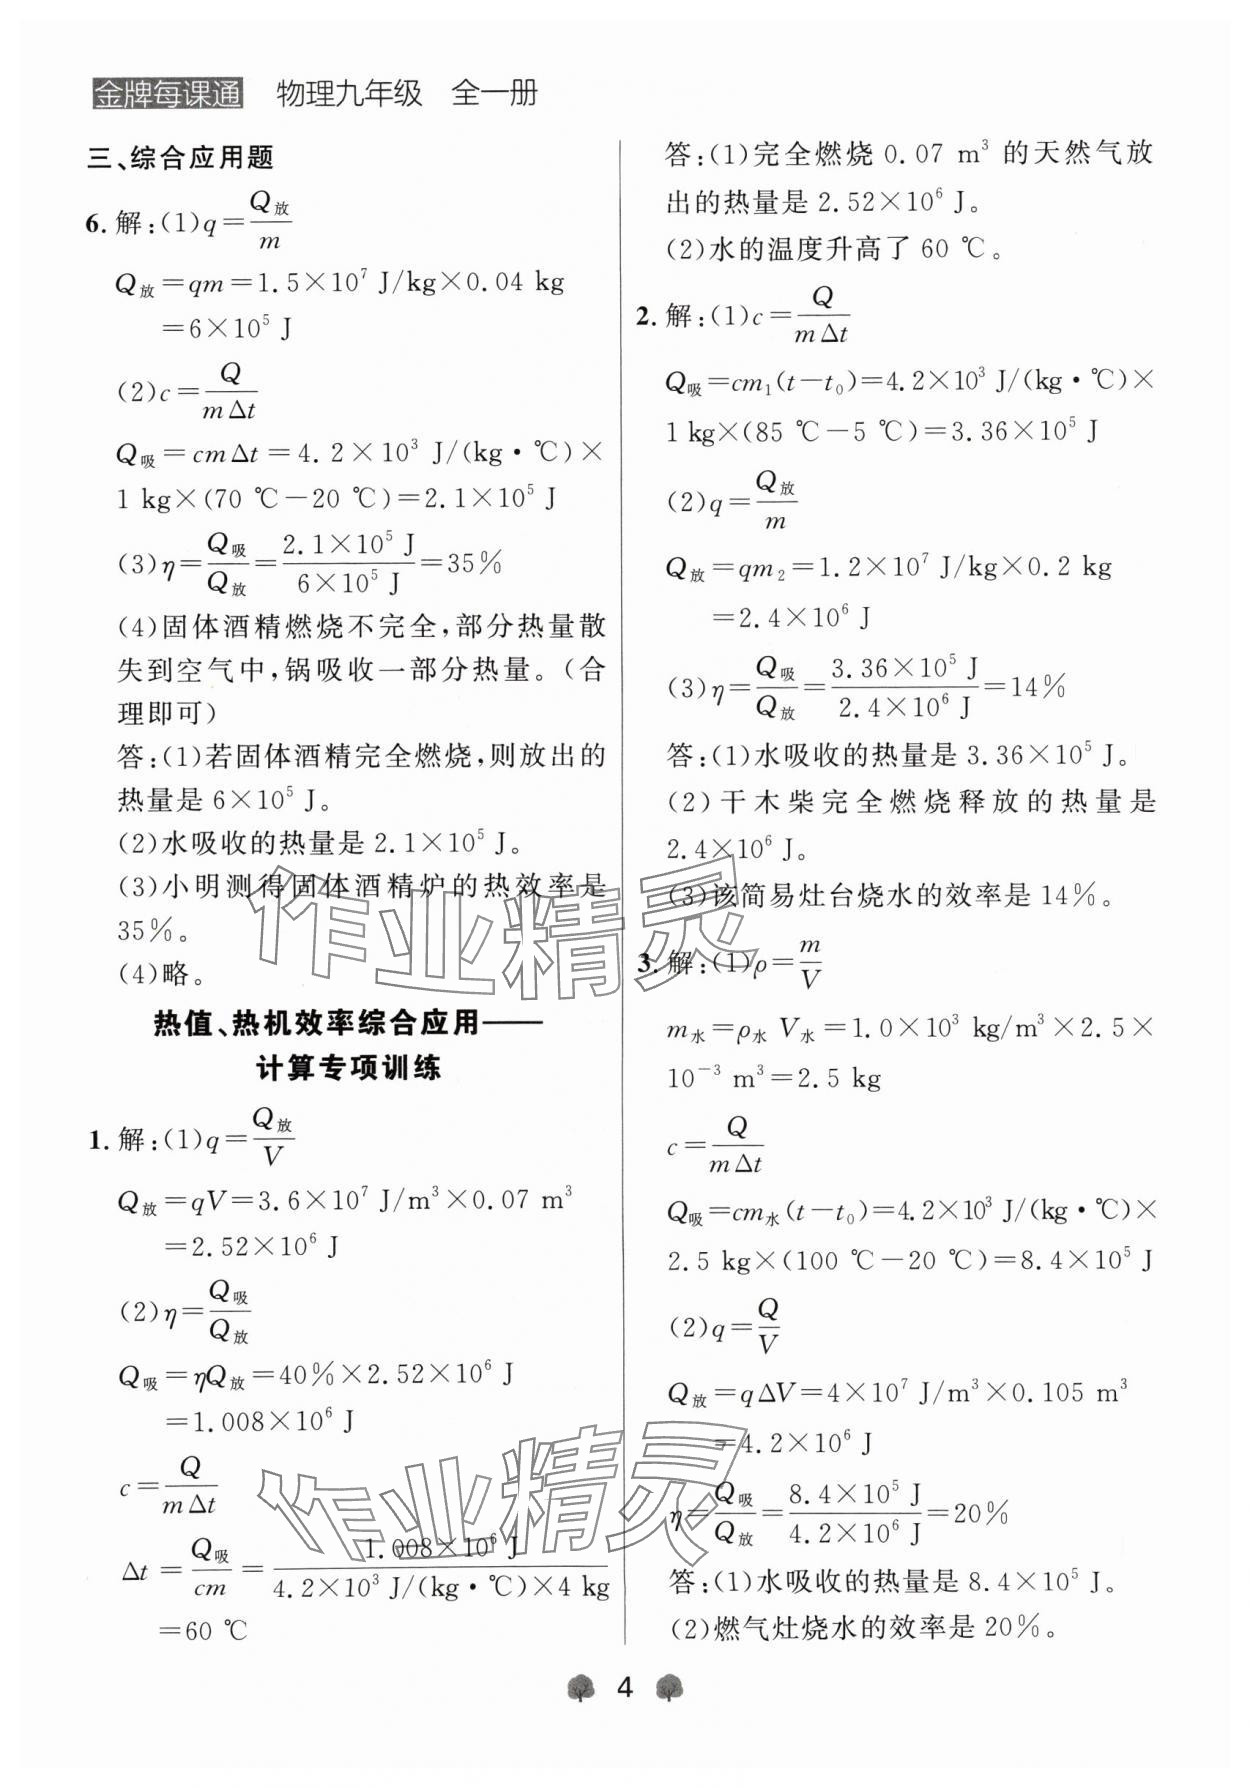 金牌每课通 物理九年级 全一册
三、综合应用题
6. 解:(1)q=Q放/m
Q放=qm=1.5×10⁷ J/kg×0.04 kg
=6×10⁵ J
(2)c=Q/(mΔt)
Q吸=cmΔt=4.2×10³ J/(kg·℃)×
1 kg×(70 ℃-20 ℃)=2.1×10⁵ J
(3)η=Q吸/Q放=(2.1×10⁵ J)/(6×10⁵ J)=35%
(4)固体酒精燃烧不完全,部分热量散
失到空气中,锅吸收一部分热量。(合
理即可)
答:(1)若固体酒精完全燃烧,则放出的
热量是 6×10⁵ J。
(2)水吸收的热量是 2.1×10⁵ J。
(3)小明测得固体酒精炉的热效率是
35%。
(4)略。
热值、热机效率综合应用——
计算专项训练
1. 解:(1)q=Q放/V
Q放=qV=3.6×10⁷ J/m³×0.07 m³
=2.52×10⁶ J
(2)η=Q吸/Q放
Q吸=ηQ放=40%×2.52×10⁶ J
=1.008×10⁶ J
c=Q/(mΔt)
Δt=Q吸/(cm)=(1.008×10⁶ J)/(4.2×10³ J/(kg·℃)×4 kg)
=60 ℃
答:(1)完全燃烧 0.07 m³ 的天然气放
出的热量是 2.52×10⁶ J。
(2)水的温度升高了 60 ℃。
2. 解:(1)c=Q/(mΔt)
Q吸=cm₁(t-t₀)=4.2×10³ J/(kg·℃)×
1 kg×(85 ℃-5 ℃)=3.36×10⁵ J
(2)q=Q放/m
Q放=qm₂=1.2×10⁷ J/kg×0.2 kg
=2.4×10⁶ J
(3)η=Q吸/Q放=(3.36×10⁵ J)/(2.4×10⁶ J)=14%
答:(1)水吸收的热量是 3.36×10⁵ J。
(2)干木柴完全燃烧释放的热量是
2.4×10⁶ J。
(3)该简易灶台烧水的效率是 14%。
3. 解:(1)ρ=m/V
m水=ρ水 V水=1.0×10³ kg/m³×2.5×
10⁻³ m³=2.5 kg
c=Q/(mΔt)
Q吸=cm水(t-t₀)=4.2×10³ J/(kg·℃)×
2.5 kg×(100 ℃-20 ℃)=8.4×10⁵ J
(2)q=Q/V
Q放=qΔV=4×10⁷ J/m³×0.105 m³
=4.2×10⁶ J
η=Q吸/Q放=(8.4×10⁵ J)/(4.2×10⁶ J)=20%
答:(1)水吸收的热量是 8.4×10⁵ J。
(2)燃气灶烧水的效率是 20%。
作业精灵
作业精灵
4